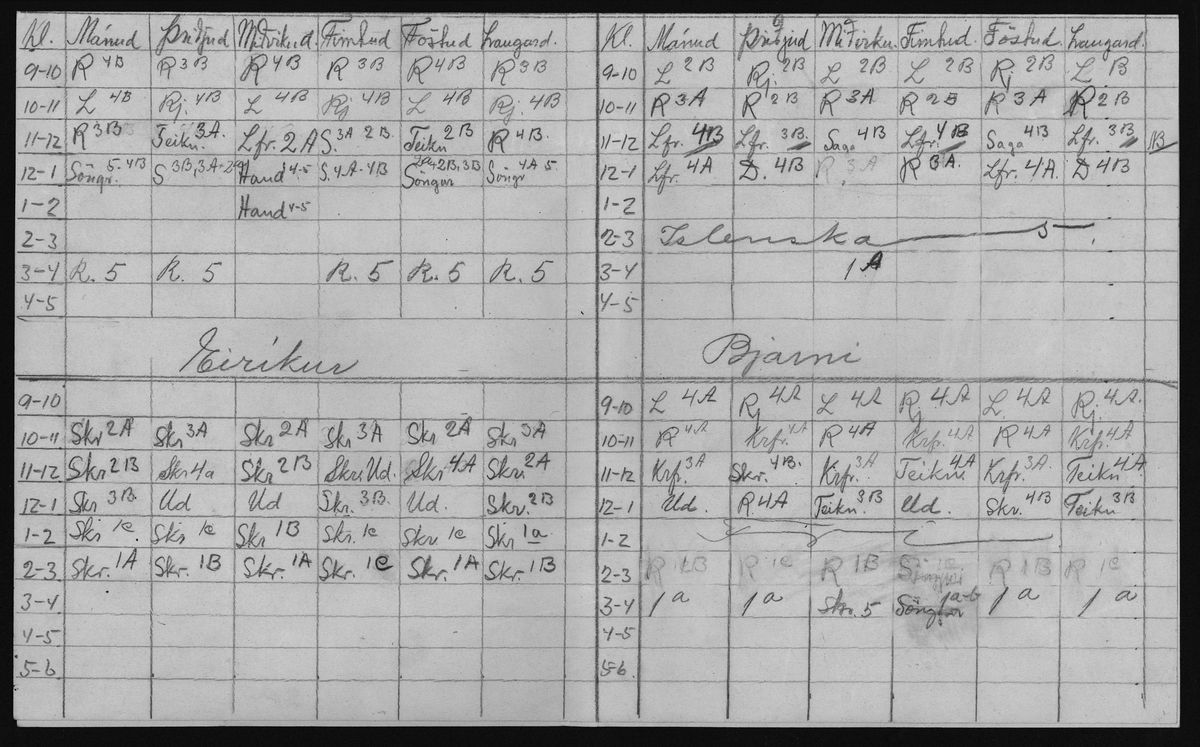 Kl. Mánud Þriðjud Miðvikud. Fimtud Föstud Laugard.
9-10 R 4B R 3B R 4B R 3B R 4B R 3B
10-11 L 4B Rj. 4B L 4B Rj 4B L 4B Rj. 4B
11-12 R 3B Teikn. 3A. Lfr. 2A S. 3A 2B. Teikn 2B R 4B.
12-1 Söngr. 5-4B S 3B, 3A-2A Hand 4-5 S. 4A-4B Söngur 2A+2B, 3B Söngr 4A 5
1-2 Hand 4-5
2-3
3-4 R. 5 R. 5 R. 5 R. 5 R. 5
4-5
Eiríkur
9-10
10-11 Skr 2A Skr 3A Skr 2A Skr 3A Skr 2A Skr 3A
11-12 Skr 2B Skr 4a Skr 2B Skr. Ud. Skr 4A Skr. 2A
12-1 Skr 3B. Ud Ud Skr. 3B. Ud. Skr. 2B
1-2 Skr 1c Skr 1c Skr 1B Skr. 1c Skr. 1c Skr 1a
2-3 Skr. 1A Skr. 1B Skr. 1A Skr. 1C Skr. 1A Skr. 1B
3-4
4-5
5-6
Kl. Mánud Þriðjud Miðviku. Fimtud. Föstud. Laugard.
9-10 L 2B Rj. 2B L 2B L 2B Rj 2B L B
10-11 R 3A R 2B R 3A R 2B R 3A R 2B
11-12 Lfr. 4B Lfr. 3B Saga 4B Lfr. 4B Saga 4B Lfr. 3B NB
12-1 Lfr. 4A D. 4B R 3A R 3A. Lfr. 4A. D 4B
1-2
2-3 Islenska 5
3-4 1A
4-5
Bjarni
9-10 L 4A Rj 4A L 4A Rj 4A L. 4A Rj. 4A
10-11 R 4A Krfr. 4A R 4A Krfr. 4A R 4A Krfr. 4A
11-12 Krfr. 3A Skr. 4B. Krfr. 3A Teikn. 4A Krfr. 3A. Teikn 4A
12-1 Ud. R. 4A Teikn. 3B Ud. Skr. 4B Teikn 3B
1-2
2-3 R 1B R 1c R 1B 1c R 1B R 1c
3-4 1a 1a Skr. 5 Söngur 1a-b 1a 1a
4-5
5-6